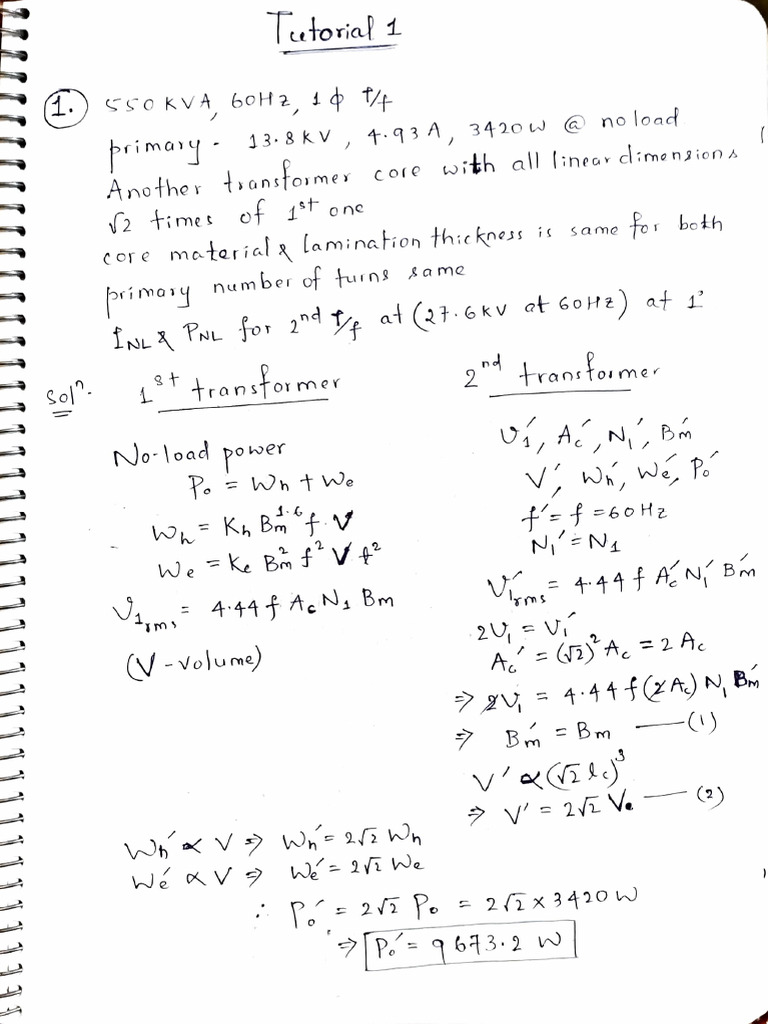 Tutorial 1
1. 550 KVA, 60Hz, 1 ϕ t/f
primary - 13.8 KV, 4.93 A, 3420 W @ no load
Another transformer core with all linear dimensions
√2 times of 1st one
core material & lamination thickness is same for both
primary number of turns same
INL & PNL for 2nd t/f at (27.6 KV at 60Hz) at 1°
Solⁿ. 1st transformer
No-load power
P₀ = Wh + We
Wh = Kh Bm^1.6 f V
We = Ke Bm² f² V t²
V1rms = 4.44 f Ac N1 Bm
(V - volume)
2nd transformer
V1', Ac', N1', Bm'
V', Wh', We', P₀'
f' = f = 60Hz
N1' = N1
V1'rms = 4.44 f Ac' N1' Bm'
2V1 = V1'
Ac' = (√2)² Ac = 2 Ac
⇒ 2V1 = 4.44 f (2Ac) N1 Bm'
⇒ Bm' = Bm —— (1)
V' ∝ (√2 lc)³
⇒ V' = 2√2 V —— (2)
Wh' ∝ V ⇒ Wh' = 2√2 Wh
We' ∝ V ⇒ We' = 2√2 We
∴ P₀' = 2√2 P₀ = 2√2 × 3420 W
⇒ P₀' = 9673.2 W